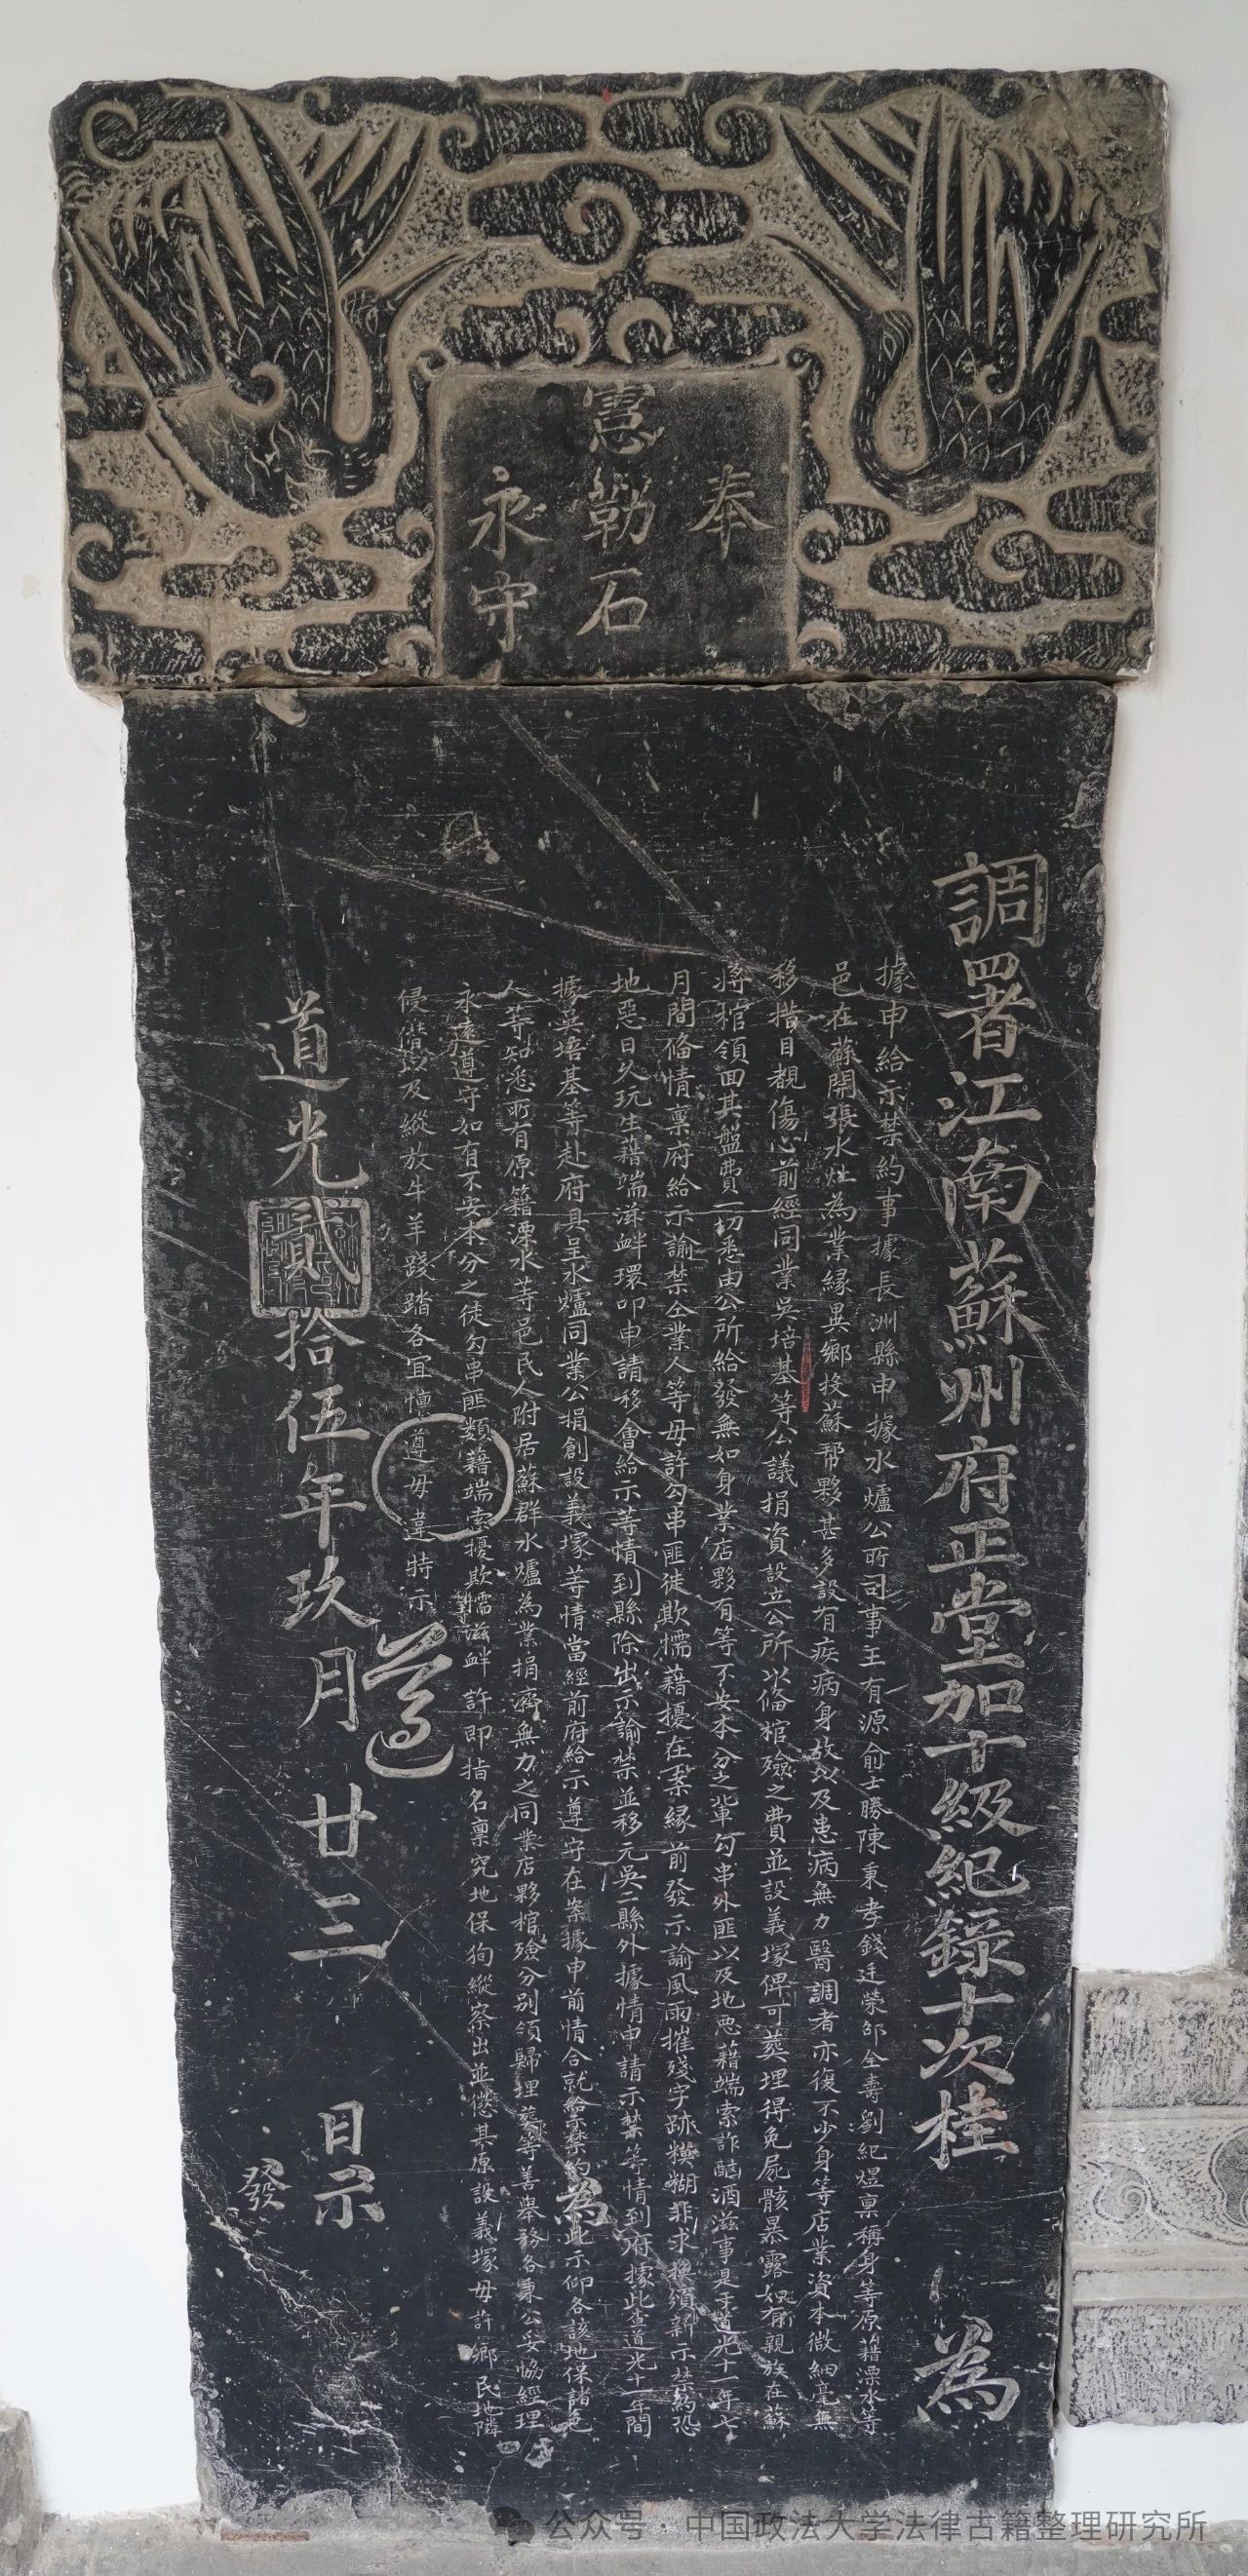 奉
憲勒石
永守
調署江南蘇州府正堂加十級紀錄十次桂 為
據申給示禁約事據長洲縣申據水爐公所司事王有源俞士勝陳秉孝錢廷榮邵全壽劉紀煜稟稱身等原籍溧水等
邑在蘇開張水灶為業緣異鄉投蘇帮夥甚多設有疾病身故以及患病無力醫調者亦復不少身等店業資本微細毫無
移措目覩傷心前經同業吳培基等公議捐資設立公所以俻棺殮之費並設義塚俾可葬埋得免屍骸暴露如有親族在蘇
將棺領回其盤費一切悉由公所給發無如身業店夥有等不安本分之輩勾串外匪以及地惡藉端索詐酗酒滋事是于道光十一年七
月間俻情稟府給示諭禁仝業人等毋許勾串匪徒欺懦藉擾在案緣前發示諭風雨摧殘字跡糢糊非求換須新示禁約恐
地惡日久玩生藉端滋衅環叩申請移會給示等情到縣除出示諭禁並移元吳二縣外據情申請示禁等情到府據此查道光十一年間
據吳培基等赴府具呈水爐同業公捐創設義塚等情當經前府給示遵守在案據申前情合就給示禁約為此示仰各該地保諸色
人等知悉所有原籍溧水等邑民人附居蘇群水爐為業捐濟無力之同業店夥棺殮分別領歸埋葬等善舉務各秉公妥協經理
永遠遵守如有不安本分之徒勾串匪類藉端索擾欺懦滋衅許即指名稟究地保狥縱察出並懲其原設義塚毋許鄉民地隣
侵僭以及縱放牛羊踐踏各宜懔遵毋違特示
遵
道光貳拾伍年玖月廿三 日示
發
公众号 · 中国政法大学法律古籍整理研究所